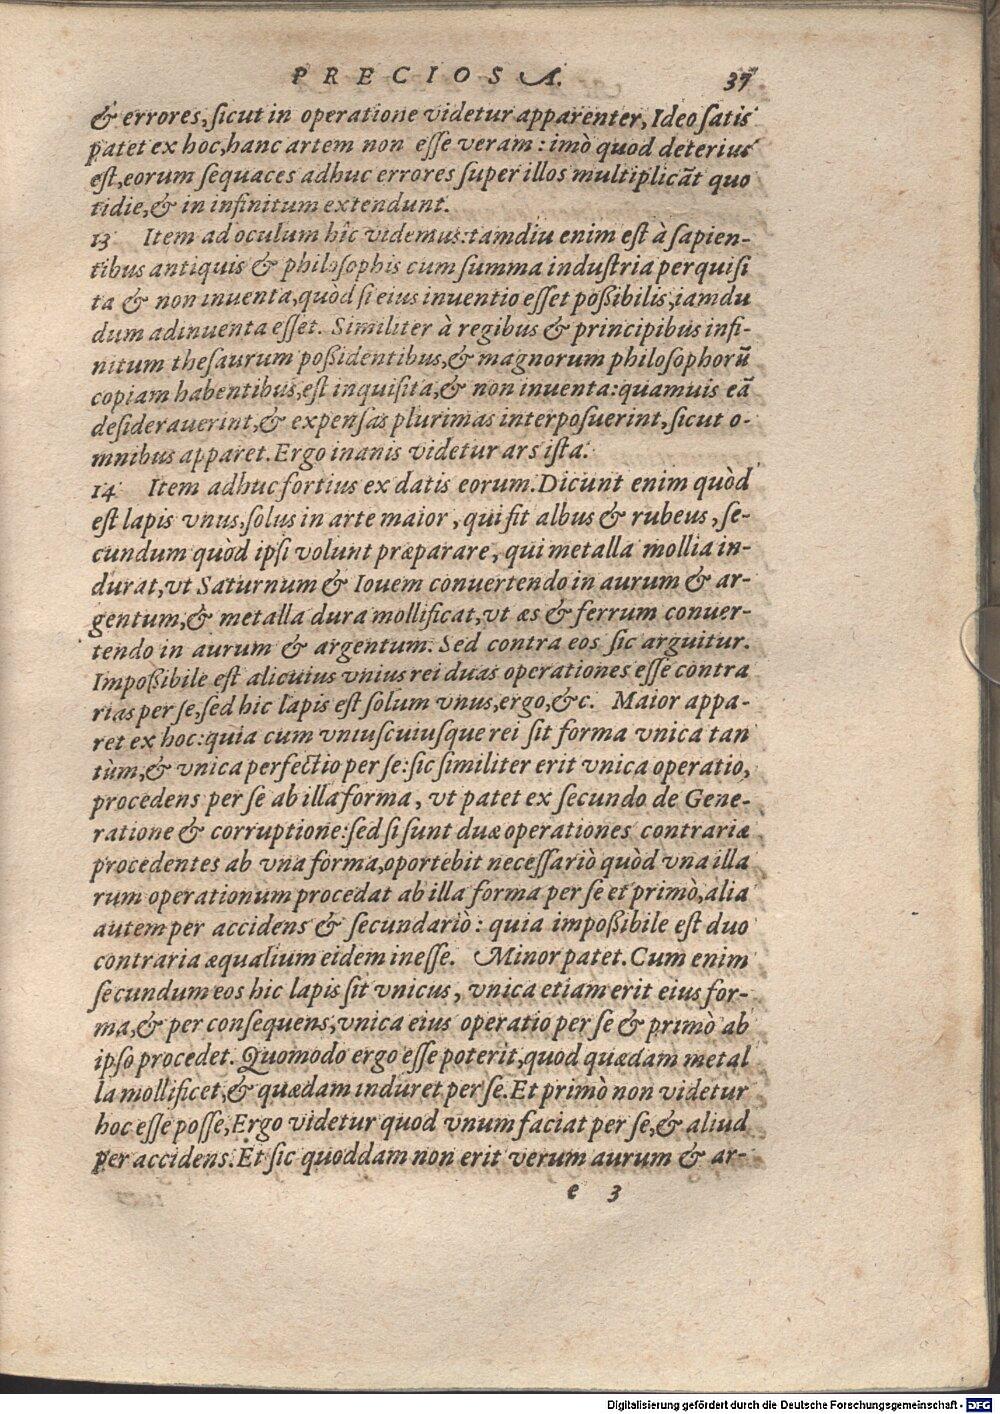 PRECIOSA. 37
& errores, ſicut in operatione videtur apparenter, Ideo ſatis
patet ex hoc, hanc artem non eſſe veram: imò quod deterius
eſt, eorum ſequaces adhuc errores ſuper illos multiplicāt quo
tidie, & in infinitum extendunt.
13 Item ad oculum hîc videmus: tamdiu enim eſt à ſapien-
tibus antiquis & philoſophis cum ſumma induſtria perquiſi
ta & non inuenta, quòd ſi eius inuentio eſſet poßibilis, iamdu
dum adinuenta eſſet. Similiter à regibus & principibus infi-
nitum theſaurum poßidentibus, & magnorum philoſophorū
copiam habentibus, eſt inquiſita, & non inuenta: quamuis eā
deſiderauerint, & expenſas plurimas interpoſuerint, ſicut o-
mnibus apparet. Ergo inanis videtur ars iſta.
14 Item adhuc fortius ex datis eorum. Dicunt enim quòd
eſt lapis vnus, ſolus in arte maior, qui fit albus & rubeus, ſe-
cundum quòd ipſi volunt præparare, qui metalla mollia in-
durat, vt Saturnum & Iouem conuertendo in aurum & ar-
gentum, & metalla dura mollificat, vt æs & ferrum conuer-
tendo in aurum & argentum. Sed contra eos ſic arguitur.
Impoßibile eſt alicuius vnius rei duas operationes eſſe contra
rias per ſe, ſed hic lapis eſt ſolum vnus, ergo, &c. Maior appa-
ret ex hoc: quia cum vniuſcuiuſque rei ſit forma vnica tan
tùm, & vnica perfectio per ſe: ſic ſimiliter erit vnica operatio,
procedens per ſe ab illa forma, vt patet ex ſecundo de Gene-
ratione & corruptione: ſed ſi ſunt duæ operationes contrariæ
procedentes ab vna forma, oportebit neceſſariò quòd vna illa
rum operationum procedat ab illa forma per ſe et primò, alia
autem per accidens & ſecundariò: quia impoßibile eſt duo
contraria æqualium eidem ineſſe. Minor patet. Cum enim
ſecundum eos hic lapis ſit vnicus, vnica etiam erit eius for-
ma, & per conſequens, vnica eius operatio per ſe & primò ab
ipſo procedet. Quomodo ergo eſſe poterit, quod quædam metal
la mollificet, & quædam induret per ſe. Et primò non videtur
hoc eſſe poſſe, Ergo videtur quod vnum faciat per ſe, & aliud
per accidens. Et ſic quoddam non erit verum aurum & ar-
e 3
Digitalisierung gefördert durch die Deutsche Forschungsgemeinschaft - DFG